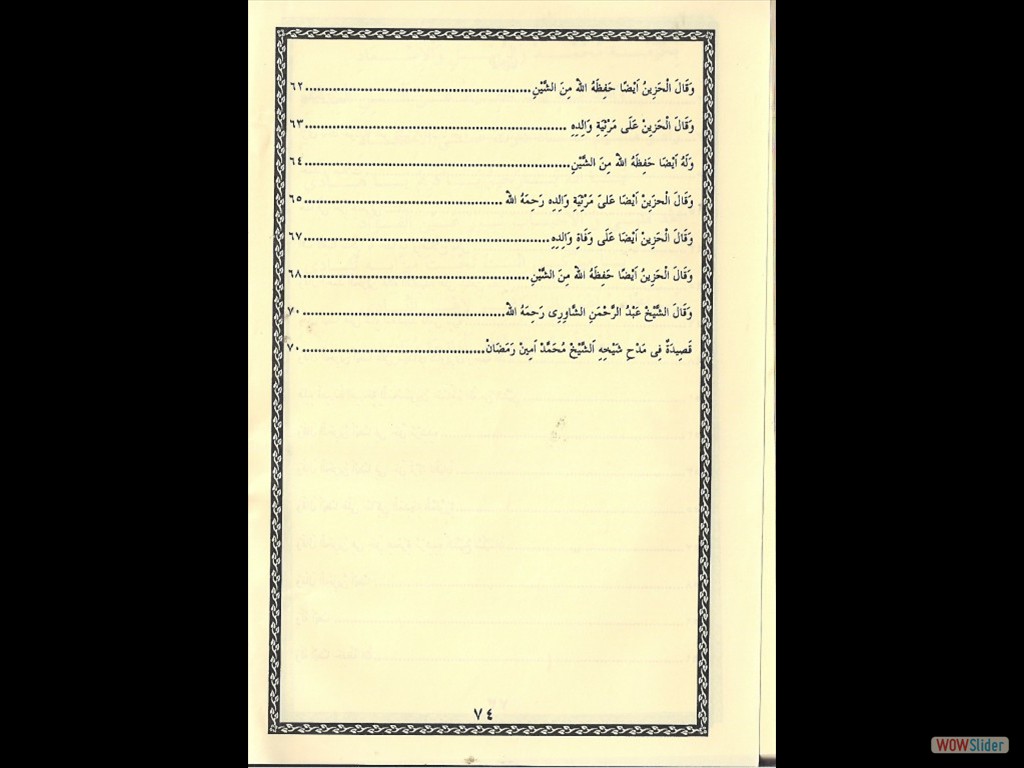 وَقَالَ الْحَزِينُ اَيْضًا حَفِظَهُ اللهُ مِنَ الشَّيْنِ.........................................................٦٢
وَقَالَ الْحَزِينْ عَلَى مَرْثِيَةِ وَالِدِهِ ..................................................................٦٣
وَلَهُ اَيْضًا حَفِظَهُ اللهُ مِنَ الشَّيْنِ...................................................................٦٤
وَقَالَ الْحَزِينْ اَيْضًا عَلىَ مَرْثِيَةِ وَالِدِه رَحِمَهُ اللهُ ..................................................٦٥
وَقَالَ الْحَزِينْ اَيْضًا عَلَى وَفَاةِ وَالِدِهِ..............................................................٦٧
وَقَالَ الْحَزِينُ اَيْضًا حَفِظَهُ اللهُ مِنَ الشَّيْنِ.........................................................٦٨
وَقَالَ الشَّيْخْ عَبْدُ الرَّحْمَنِ الشَّاوِرِى رَحِمَهُ اللهُ...................................................٧٠
قَصِيدَةٌ فِى مَدْحِ شَيْخِهِ اَلشَّيْخْ مُحَمَّدْ اَمِينْ رَمَضَانْ..............................................٧٠
٧٤
WOWSlider